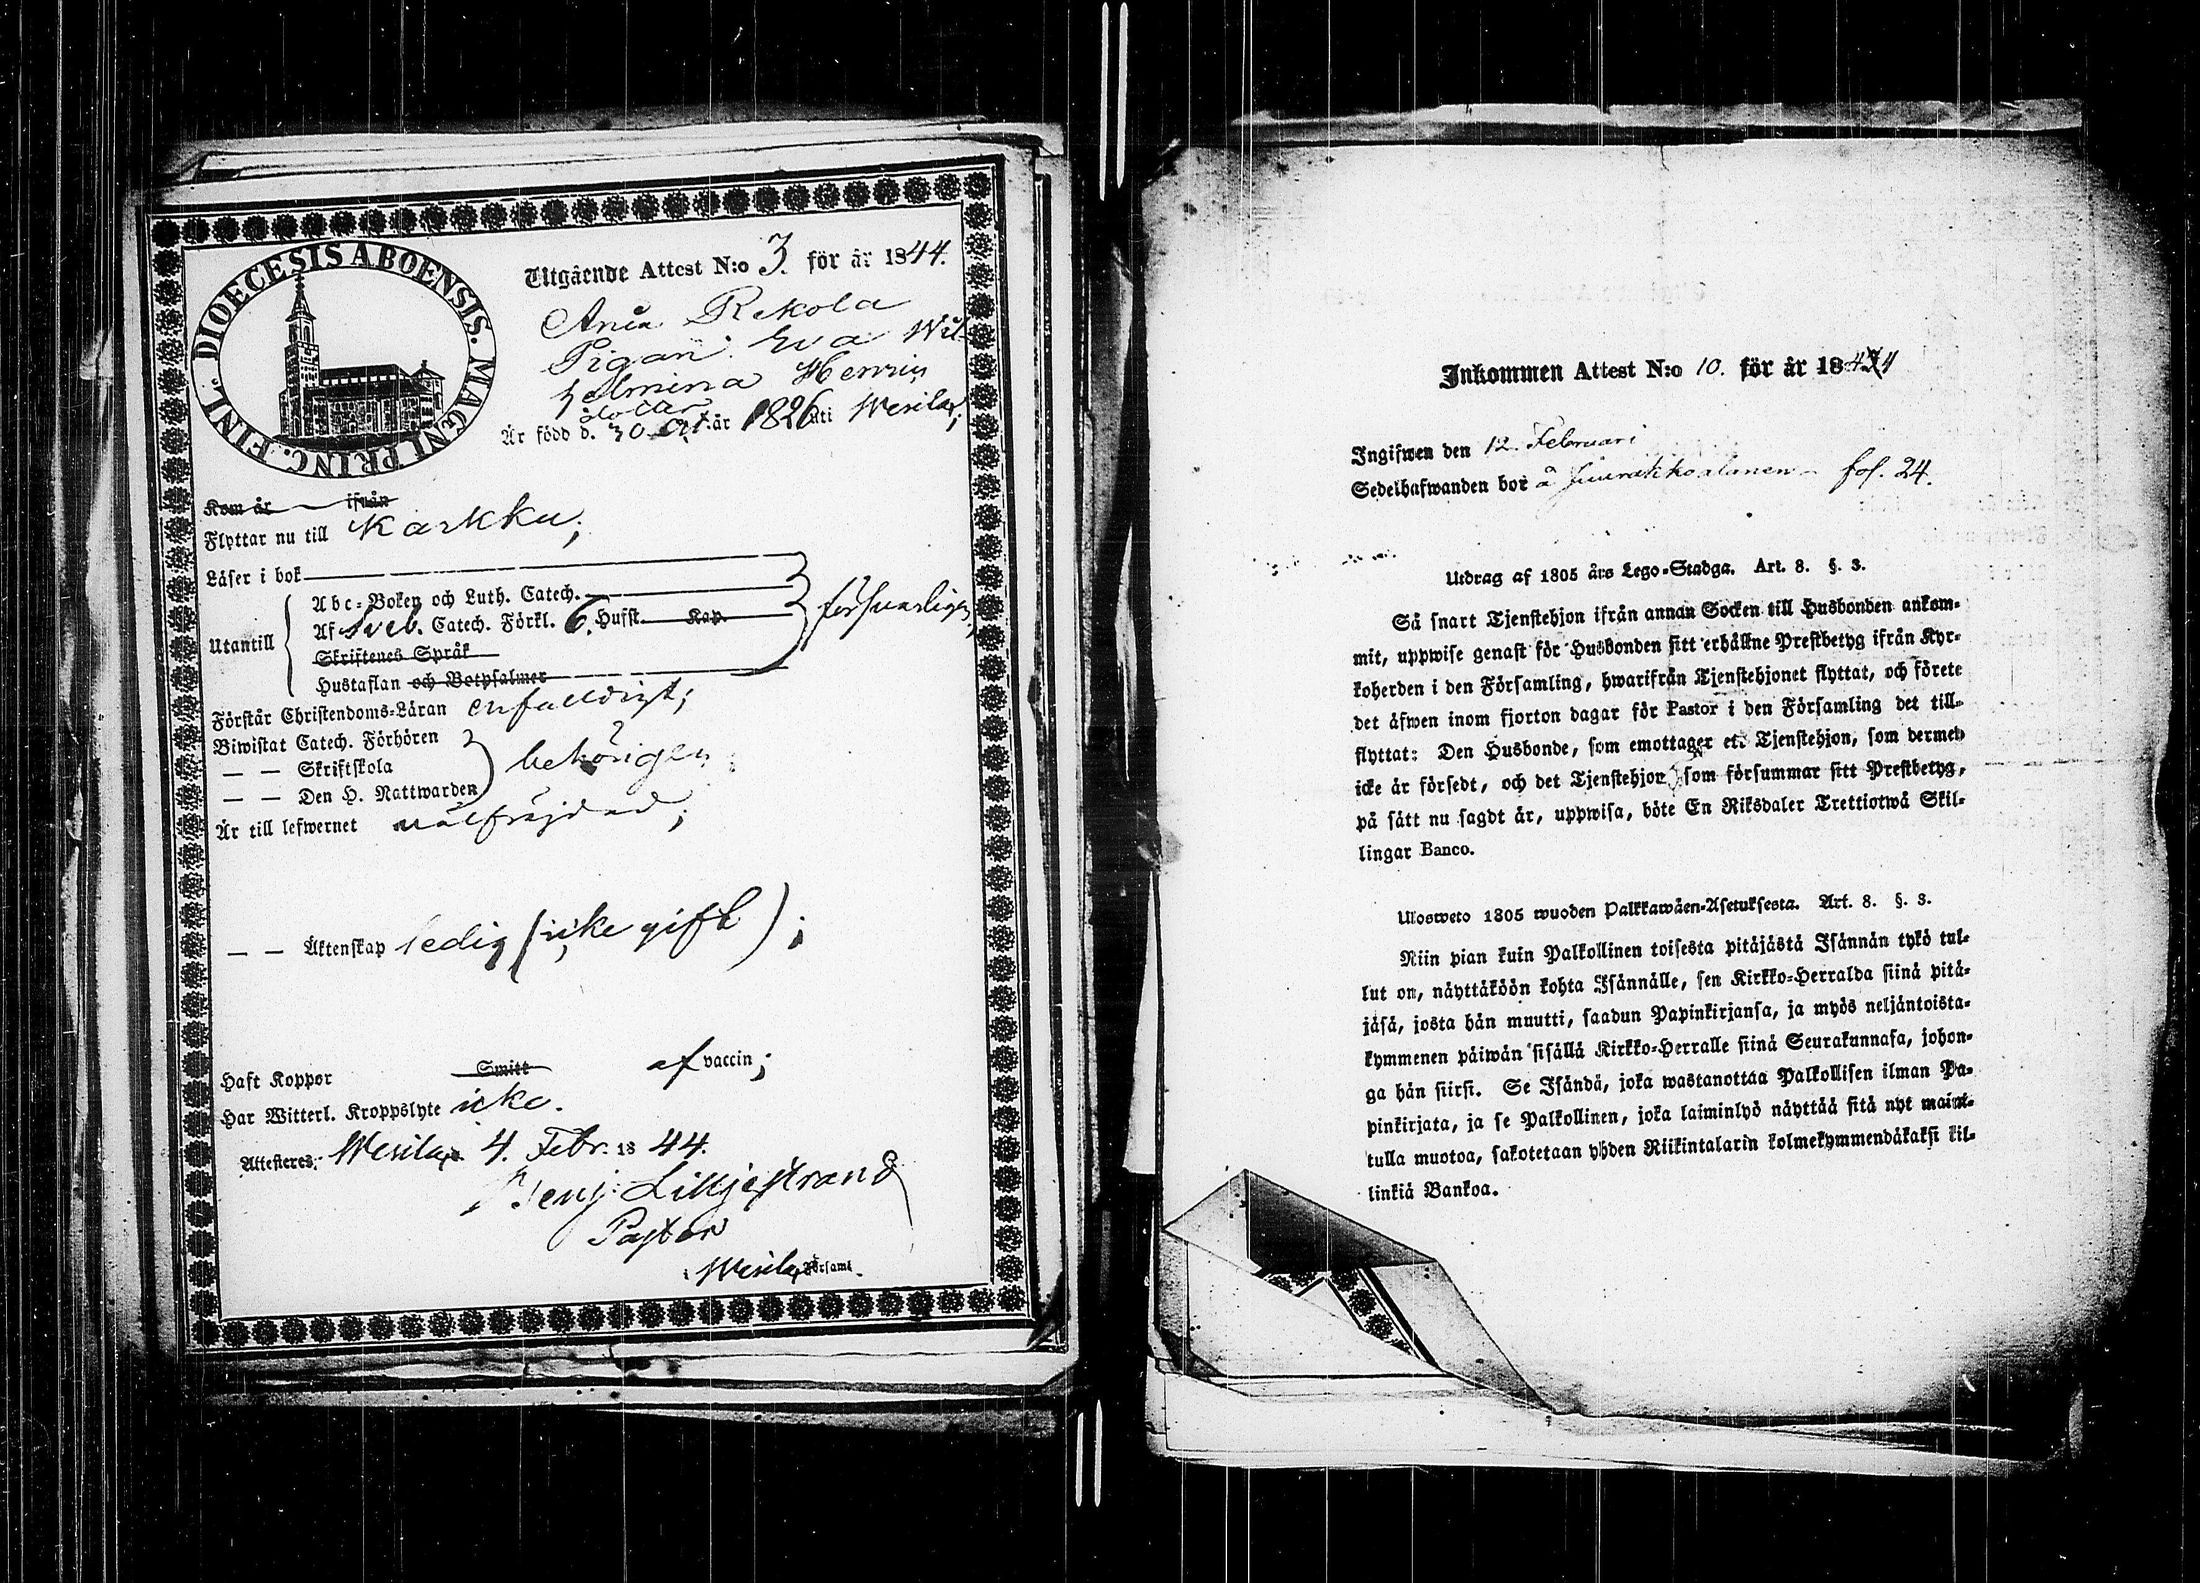 DIOECESIS ABOENSIS. MAGNI PRINC. FINL.
Utgående Attest N:o 3. för år 1844.
Rekola
Pigan Eva Wil-
helmina Henrics
dotter
Är född d. 30 år 1826 uti Wesilax;
Kom år ifrån
Flyttar nu till Karkku;
Läser i bok
Abc-Boken och Luth. Catech.
Utantill
Af Sveb. Catech. Förkl. 6. Hufst. Kap.
försvarligen;
Skriftenes Språk
Hustaflan och Botpsalmer
Förstår Christendoms-Läran enfalldigt;
Biwistat Catech. Förhören
— — Skriftskola
behörigen;
— — Den H. Nattwarden
Är till lefwernet välfräjdad;
— — Äktenskap ledig (icke gift);
Haft Koppor Smitt af vaccin;
Har Witterl. Kroppslyte icke.
Attesteres, Wesilax 4. Febr. 1844.
Benj. Lilljestrand
Pastor
i Wesilax Församl.
Inkommen Attest N:o 10. för år 1844
Ingifwen den 12 Februari
Sedelhafwanden bor å Juurakko fol. 24.
Utdrag af 1805 års Lego-Stadga. Art. 8. §. 3.
Så snart Tjenstehjon ifrån annan Socken till Husbonden ankom-
mit, uppwise genast för Husbonden sitt erhållne Prestbetyg ifrån Kyr-
koherden i den Församling, hwarifrån Tjenstehjonet flyttat, och förete
det äfwen inom fjorton dagar för Pastor i den Församling det till-
flyttat: Den Husbonde, som emottager ett Tjenstehjon, som dermed
icke är försedt, och det Tjenstehjon, som försummar sitt Prestbetyg,
på sätt nu sagdt är, uppwisa, böte En Riksdaler Trettiotwå Skil-
lingar Banco.
Ulosweto 1805 wuoden Palkkawäen-Asetuksesta. Art. 8. §. 3.
Niin pian kuin Palkollinen toisesta pitäjästä Isännän tykö tul-
lut on, näyttäköön kohta Isännälle, sen Kirkko-Herralda siinä pitä-
jäsä, josta hän muutti, saadun Papinkirjansa, ja myös neljäntoista-
kymmenen päiwän sisällä Kirkko-Herralle siinä Seurakunnasa, johon-
ga hän siirsi. Se Isändä, joka wastanottaa Palkollisen ilman Pa-
pinkirjata, ja se Palkollinen, joka laiminlyö näyttää sitä nyt maini-
tulla muotoa, sakotetaan yhden Riikintalarin kolmekymmendäkaksi kil-
linkiä Bankoa.